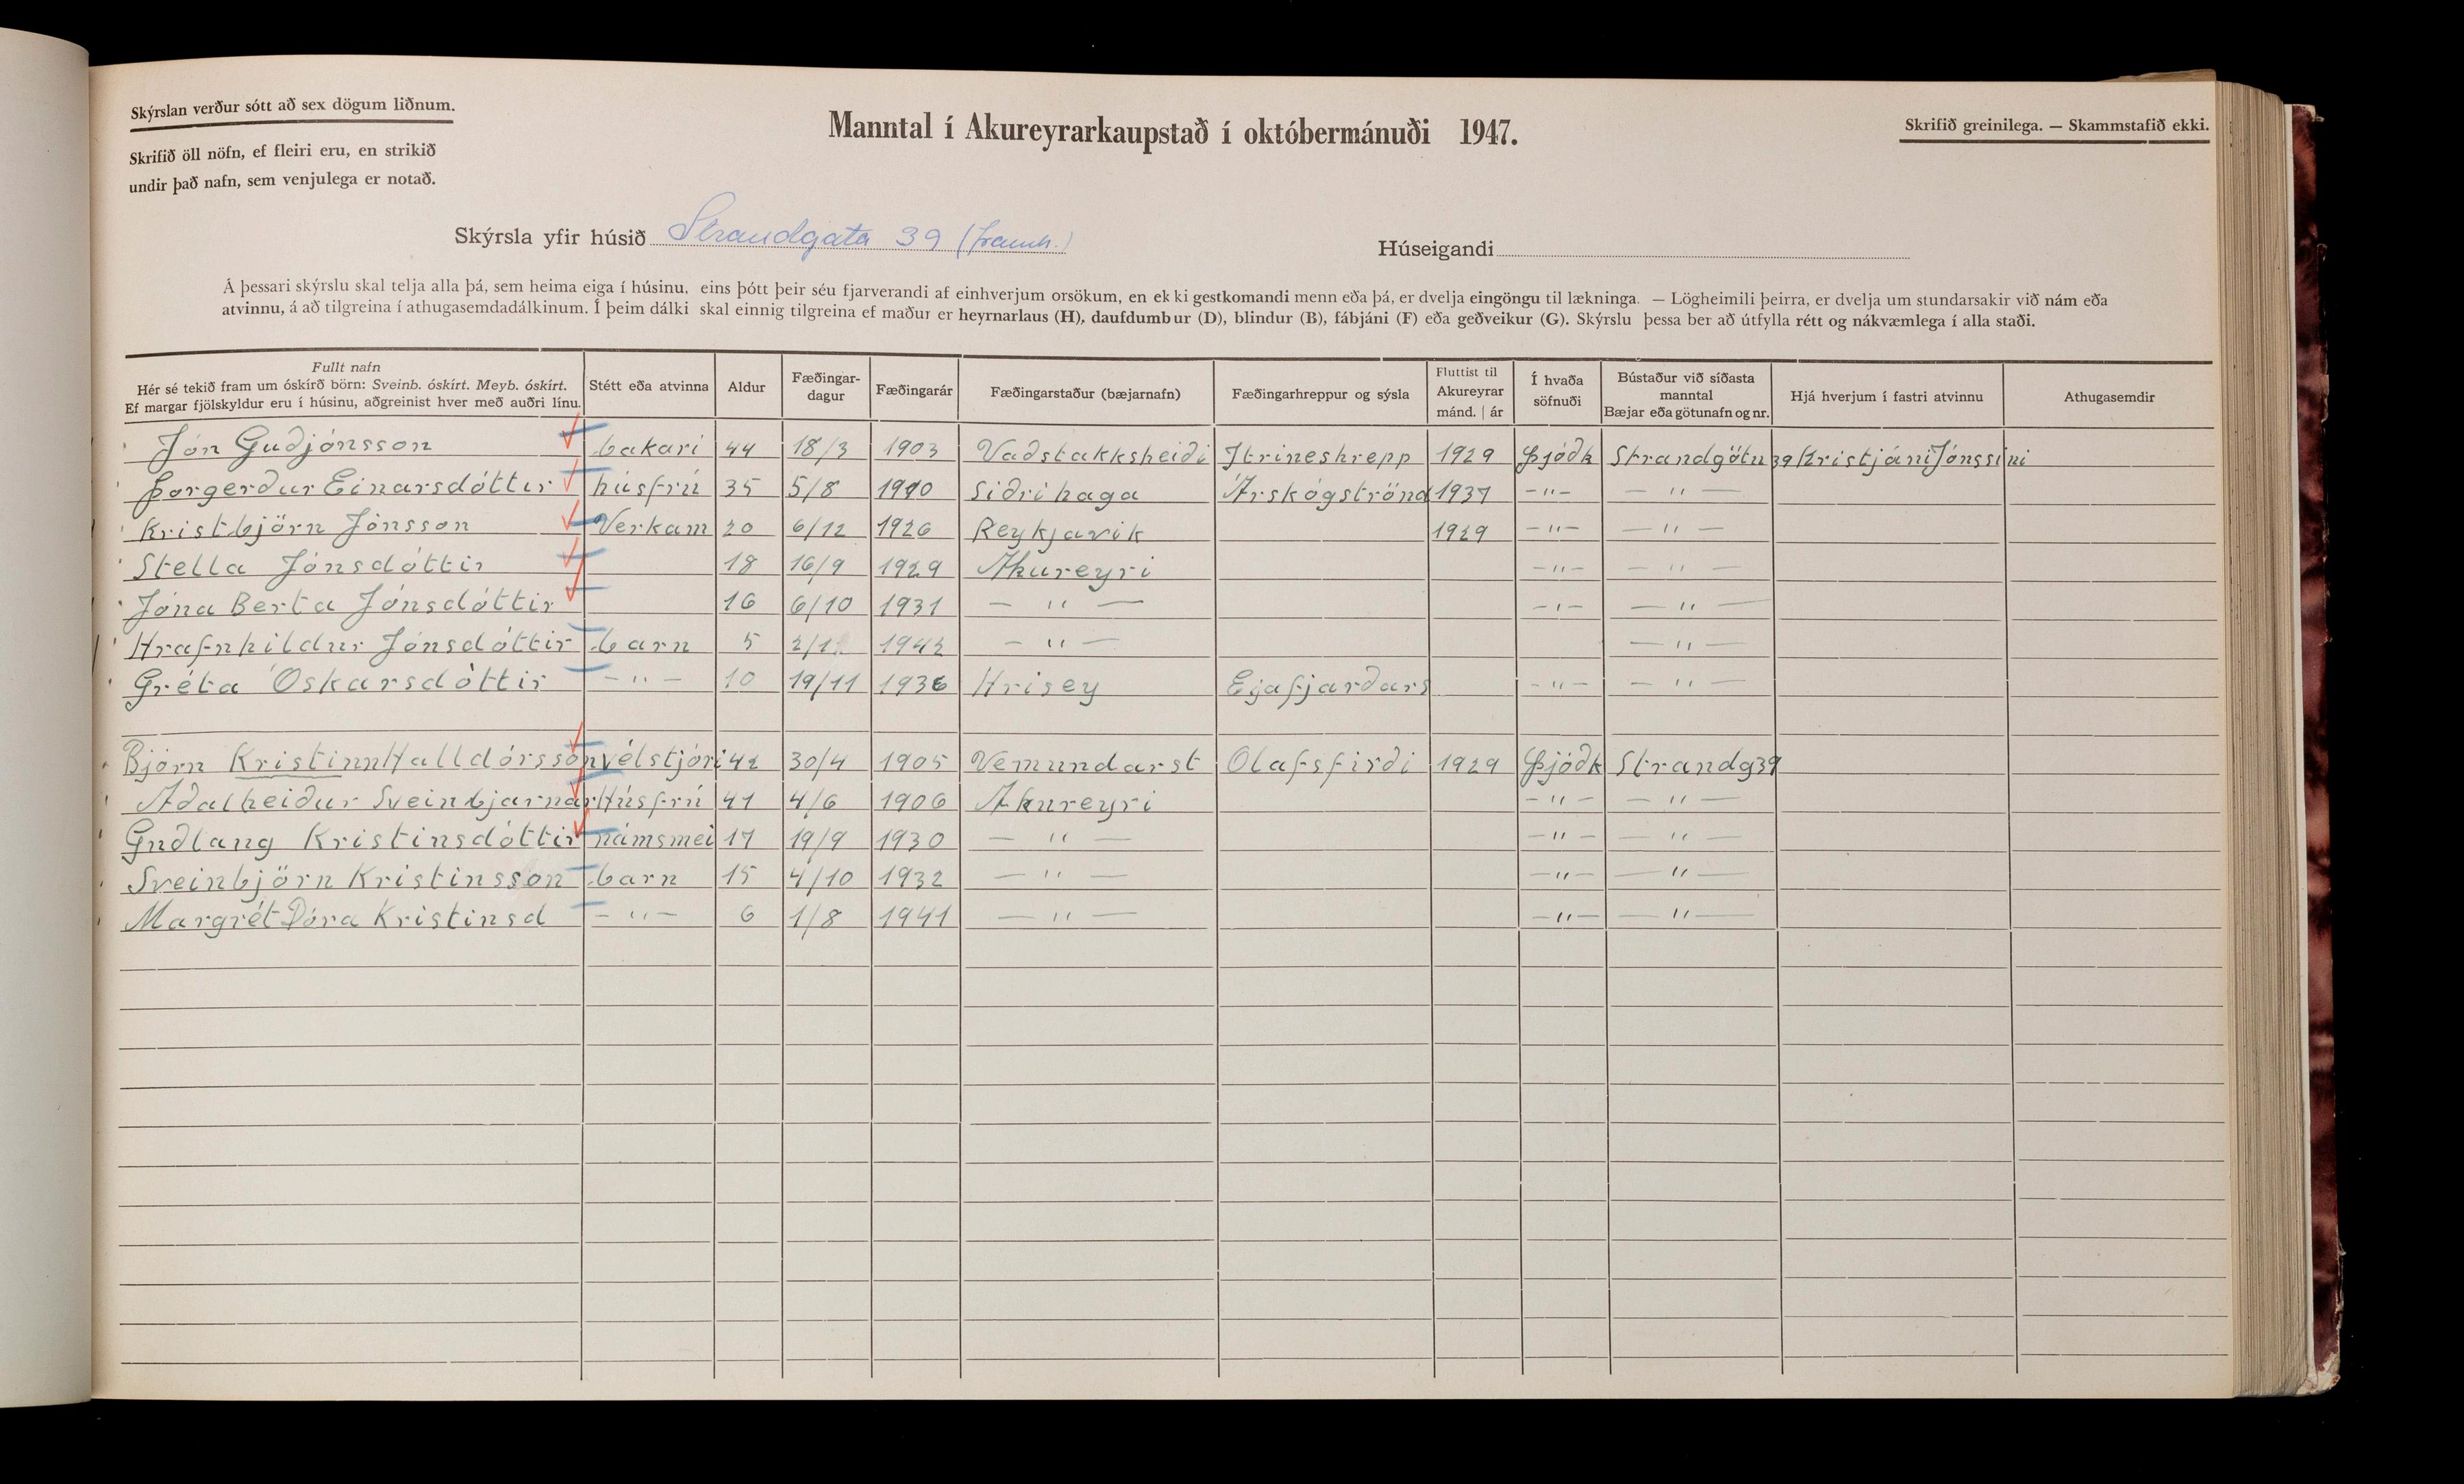 Skýrslan verður sótt að sex dögum liðnum.
Skrifið öll nöfn, ef fleiri eru, en strikið
undir það nafn, sem venjulega er notað.
Manntal í Akureyrarkaupstað í októbermánuði 1947.
Skrifið greinilega. — Skammstafið ekki.
Skýrsla yfir húsið Strandgata 39 (framh.)
Húseigandi
Á þessari skýrslu skal telja alla þá, sem heima eiga í húsinu, eins þótt þeir séu fjarverandi af einhverjum orsökum, en ekki gestkomandi menn eða þá, er dvelja eingöngu til lækninga. — Lögheimili þeirra, er dvelja um stundarsakir við nám eða
atvinnu, á að tilgreina í athugasemdadálkinum. Í þeim dálki skal einnig tilgreina ef maður er heyrnarlaus (H), daufdumbur (D), blindur (B), fábjáni (F) eða geðveikur (G). Skýrslu þessa ber að útfylla rétt og nákvæmlega í alla staði.
Fullt nafn
Hér sé tekið fram um óskírð börn: Sveinb. óskírt. Meyb. óskírt.
Ef margar fjölskyldur eru í húsinu, aðgreinist hver með auðri línu.
Stétt eða atvinna
Aldur
Fæðingar-
dagur
Fæðingarár
Fæðingarstaður (bæjarnafn)
Fæðingarhreppur og sýsla
Fluttist til
Akureyrar
mánd. | ár
Í hvaða
söfnuði
Bústaður við síðasta
manntal
Bæjar eða götunafn og nr.
Hjá hverjum í fastri atvinnu
Athugasemdir
Jón Guðjónsson bakari 44 18/3 1903 Vaðstakksheiði Itrineshrepp 1929 Þjóðk Strandgötu 39 Kristjáni Jónssini
Þorgerður Einarsdóttir húsfrú 35 5/8 1910 Siðrihaga Árskógströnd 1937 -"- — " —
Kristbjörn Jónsson Verkam 20 6/12 1926 Reykjavik 1929 -"- — " —
Stella Jónsdóttir 18 16/9 1929 Akureyri -"- — " —
Jóna Berta Jónsdóttir 16 6/10 1931 — " — -"- — " —
Hrafnhildur Jónsdóttir barn 5 2/1 1942 — " — — " —
Gréta Óskarsdóttir - " - 10 19/11 1936 Hrisey Eyafjarðars -"- — " —
Björn Kristinn Halldórsson vélstjóri 42 30/4 1905 Vemundarst Olafsfirði 1929 Þjóðk Strandg 39
Aðalheiður Sveinbjarnar Húsfrú 41 4/6 1906 Akureyri -"- — " —
Guðlaug Kristinsdóttir námsmei 17 19/9 1930 — " — -"- — " —
Sveinbjörn Kristinsson barn 15 4/10 1932 — " — -"- — " —
Margrét Dóra Kristinsd - " - 6 1/8 1941 — " — -"- — " —